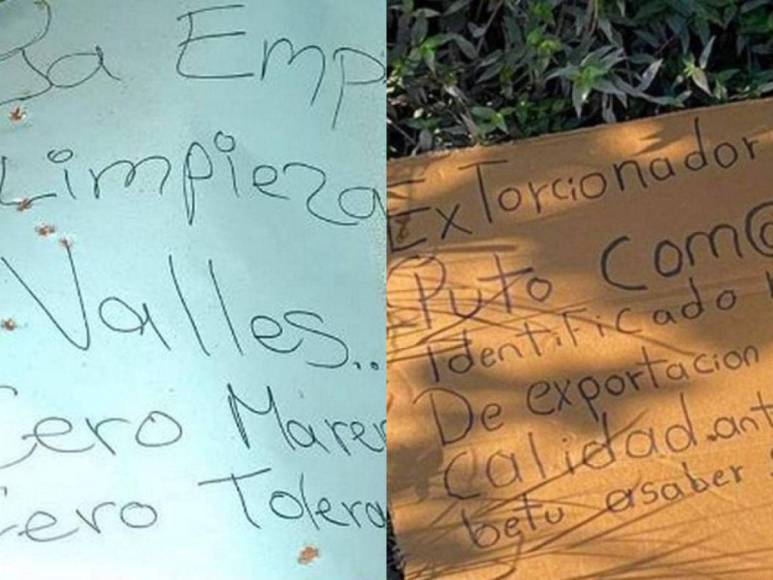 Ya Emp
Limpieza
Valles...
Cero Marer
Cero Tolera
ExTorcionador
Puto Com@
Identificado
De exportacion
Calidad.ant
betu asaber